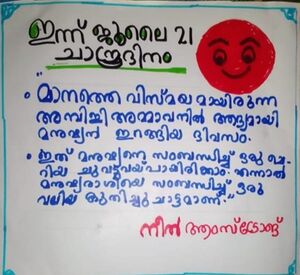 ഇന്ന് ജൂലൈ 21
ചാന്ദ്രദിനം
• മാനത്തെ വിസ്മയമായിരുന്ന
അമ്പിളി അമ്മാവനിൽ ആദ്യമായി
മനുഷ്യൻ ഇറങ്ങിയ ദിവസം.
• ഇത് മനുഷ്യനെ സംബന്ധിച്ച് ഒരു ചെ-
റിയ ചുവടുവയ്പായിരിക്കാം. എന്നാൽ
മനുഷ്യരാശിയെ സംബന്ധിച്ച് ഒരു
വലിയ കുതിച്ചു ചാട്ടമാണ്."
നീൽ ആംസ്ട്രോങ്ങ്